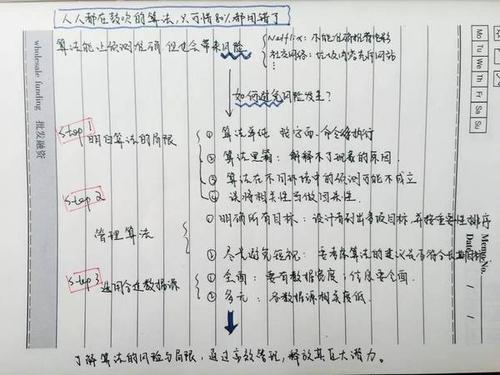 人人都在鼓吹的算法,只可惜80%都用错了
算法能让预测准确 但也会带来风险
Netflix:不能准确推荐电影
社交网络:垃圾内容充斥网站
如何避免风险发生?
Step 1
明白算法的局限
① 算法单纯 按字面命令你执行
② 算法黑箱:解释不了现象的原因.
③ 算法在不同环境中的预测可能不成立
④ 误将相关性当做因果性
Step 2
管理算法
① 明确所有目标:设计者列出多项目标,并按重要性排序
② 尽量避免短视:要考虑算法的建议是否符合长期目标
Step 3
选用合适数据源
① 全面:要有数据宽度;信息要全面.
② 多元:各数据源相关度低.
了解算法的风险与局限,通过高效管理,释放其巨大潜力.
wholesale funding 批发融资
Mo Tu We Th Fr Sa Su
Memo No.
Date / /